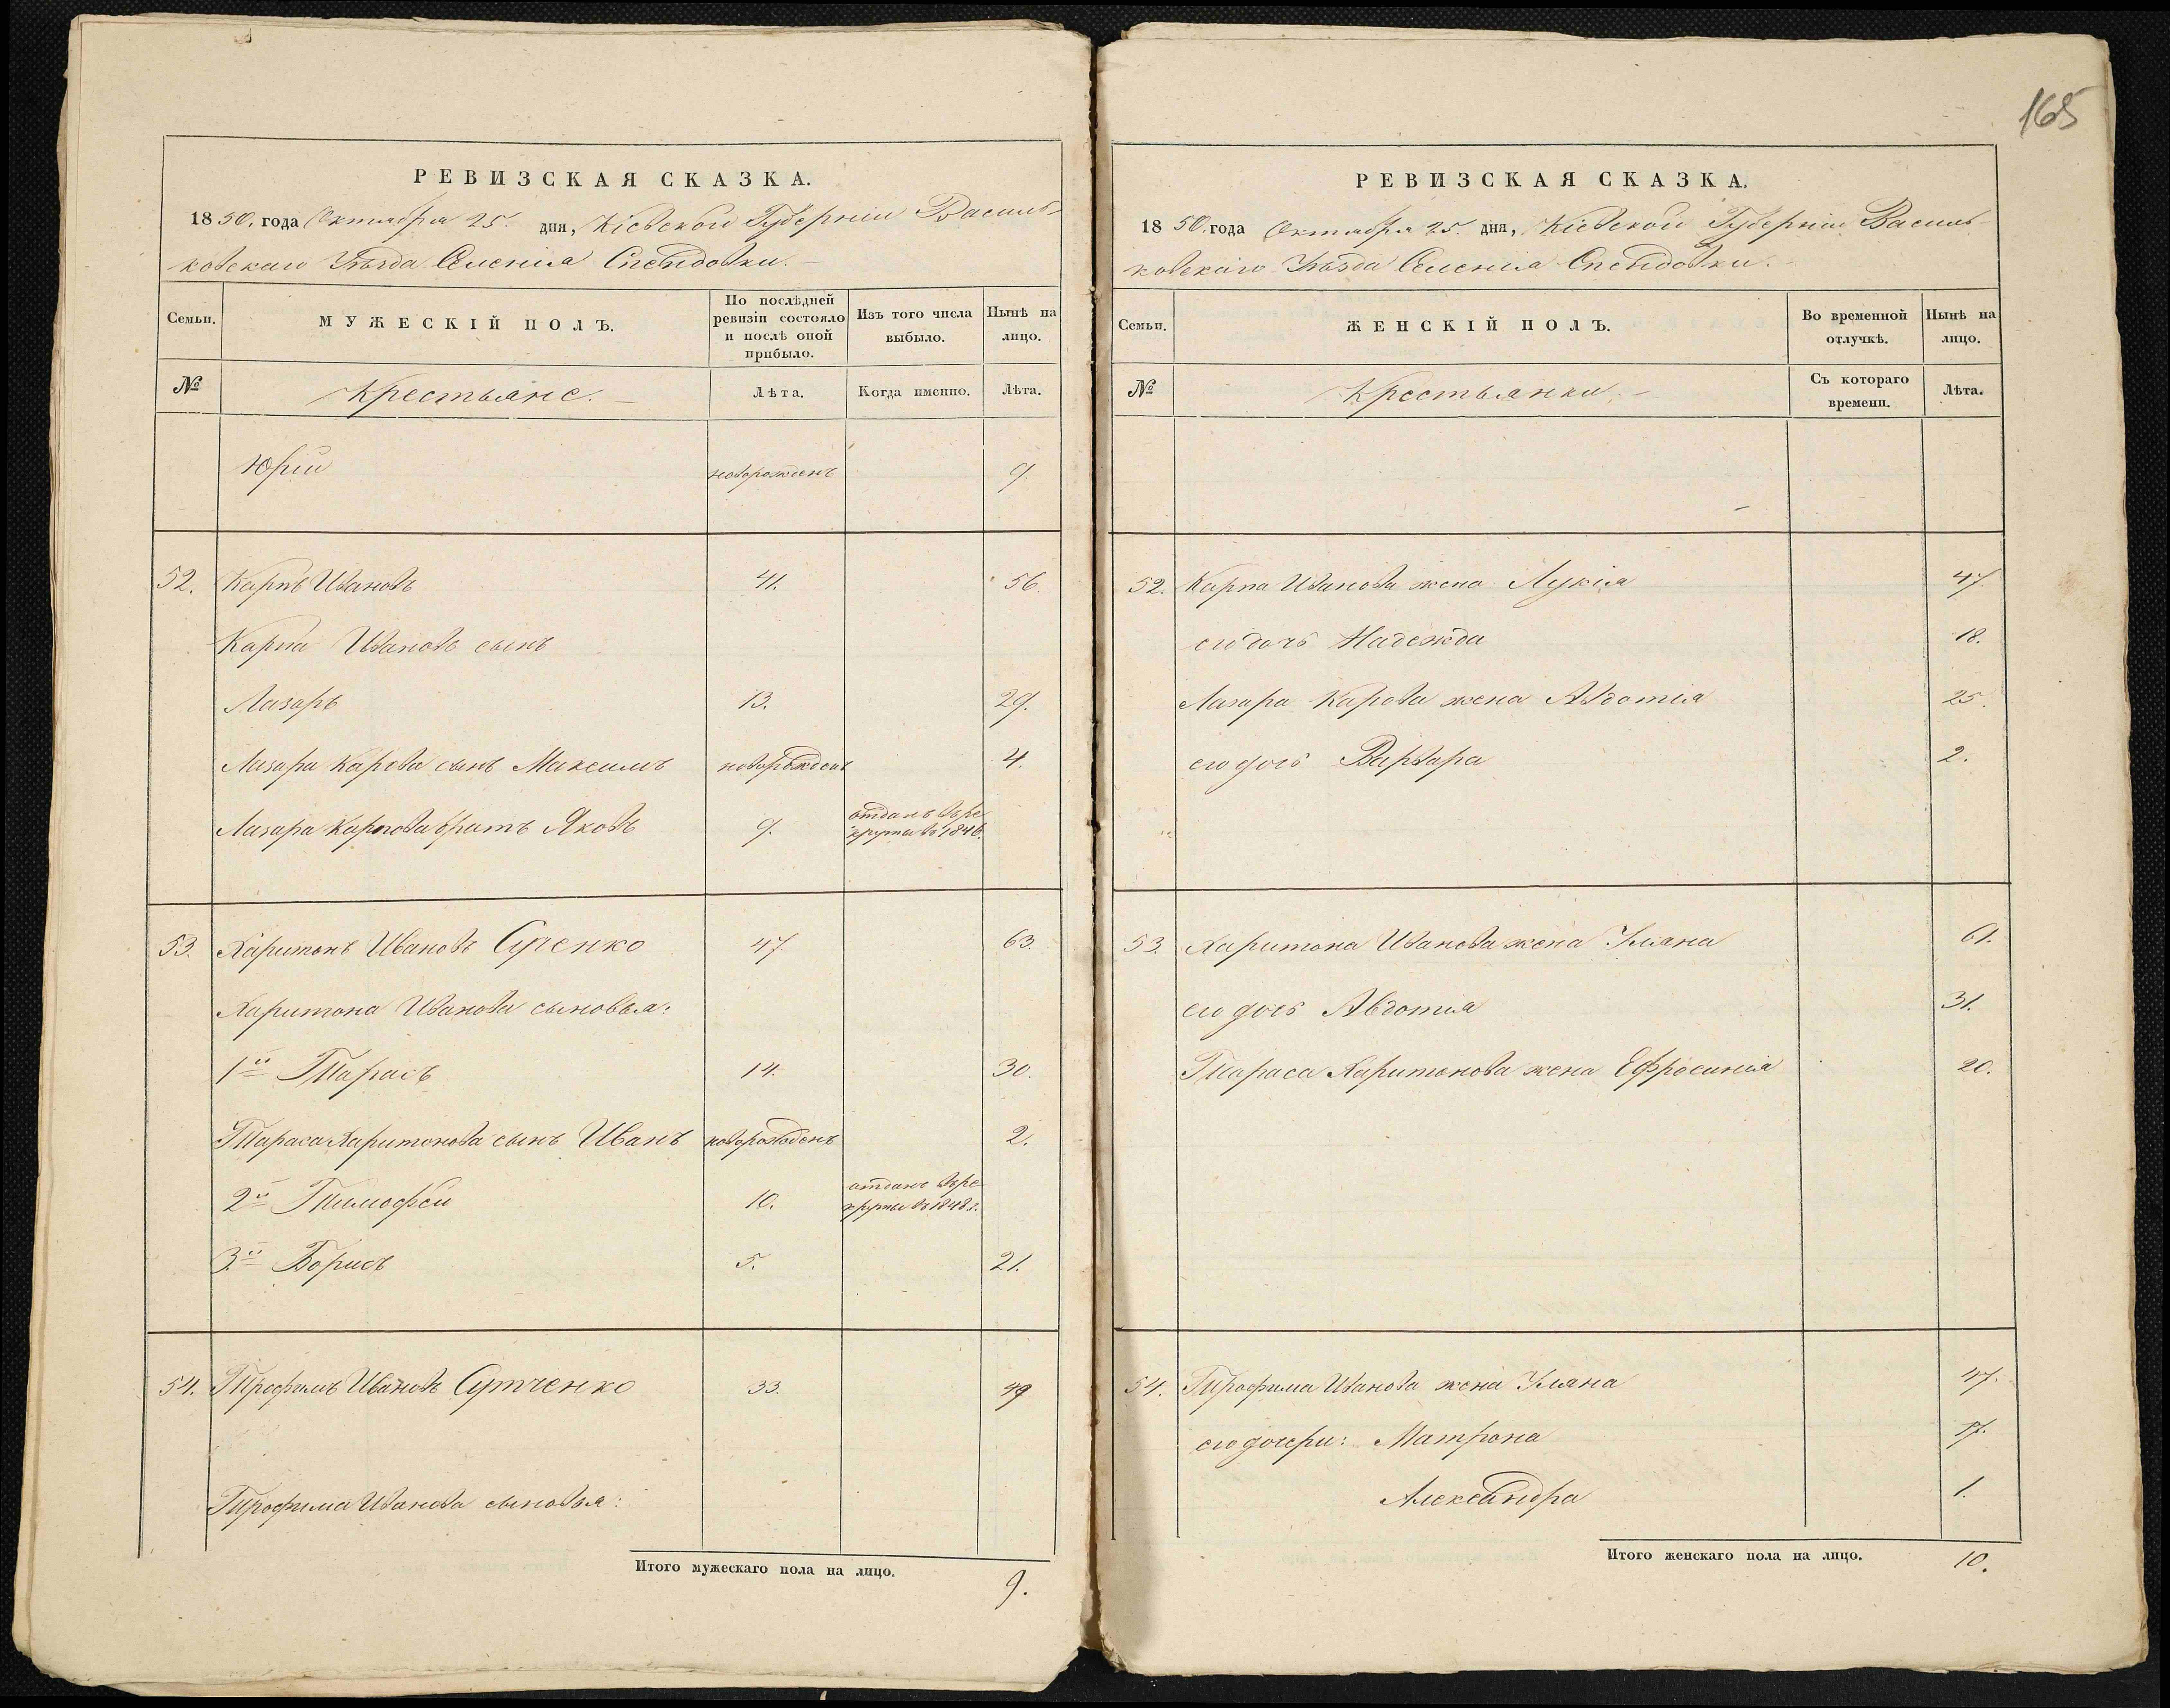 РЕВИЗСКАЯ СКАЗКА.
1850. года Октября 25. дня, Кіевской Губерніи Василь-
ковскаго Уѣзда Селенія Спендовки.
Семьи.
МУЖЕСКІЙ ПОЛЪ.
По послѣдней ревизіи состояло и послѣ оной прибыло.
Изъ того числа выбыло.
Нынѣ на лицо.
№ Крестьяне. Лѣта. Когда именно. Лѣта.
Юрій новорожденъ 9.
52. Карпъ Ивановъ 41. 56.
Карпа Ивановъ сынъ
Лазарь 13. 29.
Лазара Карпова сынъ Максимъ новорожденъ 4.
Лазара Карпова братъ Яковъ 9. отданъ въ ре-
круты въ 1846.
53. Харитонъ Ивановъ 47. 63.
Харитона Иванова сыновья:
1й Тарасъ 14. 30.
Тараса Харитонова сынъ Иванъ новорожденъ 2.
2й Тимофей 10. отданъ въ ре-
круты въ 1848 г.
3й Борисъ 5. 21.
54. Трофимъ Ивановъ 33. 49
Трофима Иванова сыновья:
Итого мужескаго пола на лицо.
9.
165
РЕВИЗСКАЯ СКАЗКА.
1850. года Октября 25. дня, Кіевской Губерніи Василь-
ковскаго Уѣзда Селенія Спендовки.
Семьи.
ЖЕНСКІЙ ПОЛЪ.
Во временной отлучкѣ.
Нынѣ на лицо.
№ Крестьянки. Съ котораго времени. Лѣта.
52. Карпа Иванова жена Лукія 47.
его дочь Надежда 18.
Лазара Карпова жена Авдотія 25.
его дочь Варвара 2.
53. Харитона Иванова жена Уляна 61.
его дочь Авдотія 31.
Тараса Харитонова жена Ефросинія 20.
54. Трофима Иванова жена Уляна 47.
его дочери: Матрона
Александра 1.
Итого женскаго пола на лицо. 10.